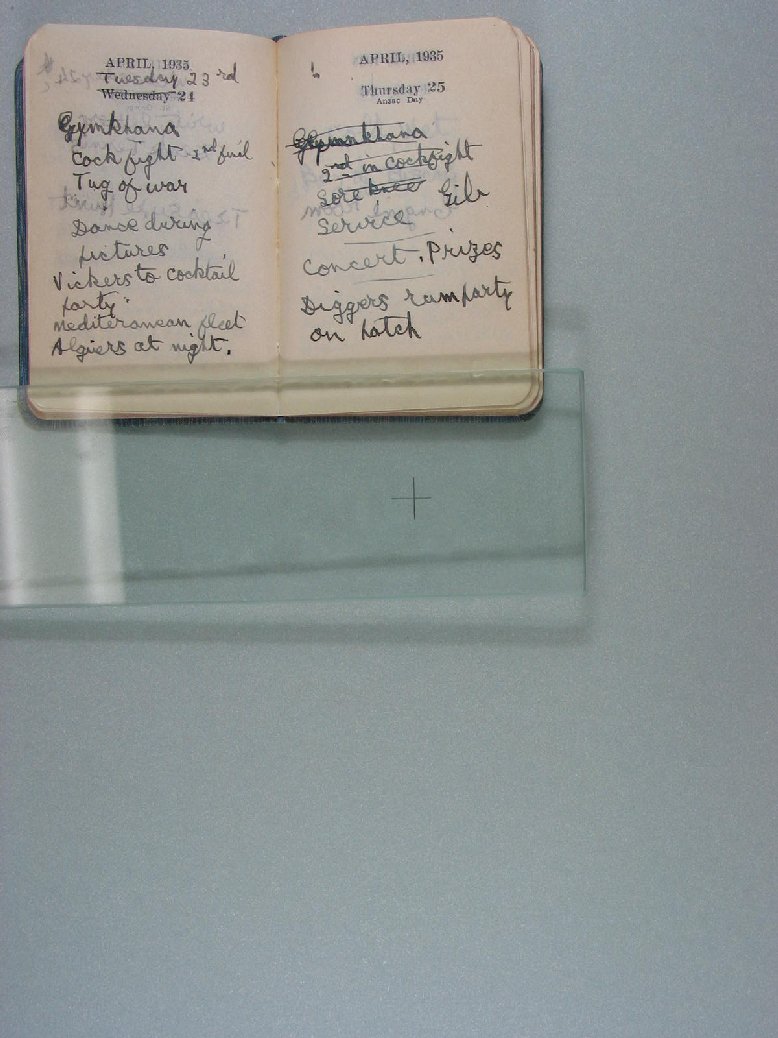 APRIL, 1935
Tuesday 23rd
Wednesday 24
Gymkhana
Cock fight 2nd final
Tug of war
Dance during
pictures
Vickers to cocktail
party.
Mediteranean fleet
Algiers at night.
APRIL, 1935
Thursday 25
Anzac Day
Gymnkhana
2nd in cockfight
Sore knee Gib
Service
Concert. Prizes
Diggers rumparty
on hatch